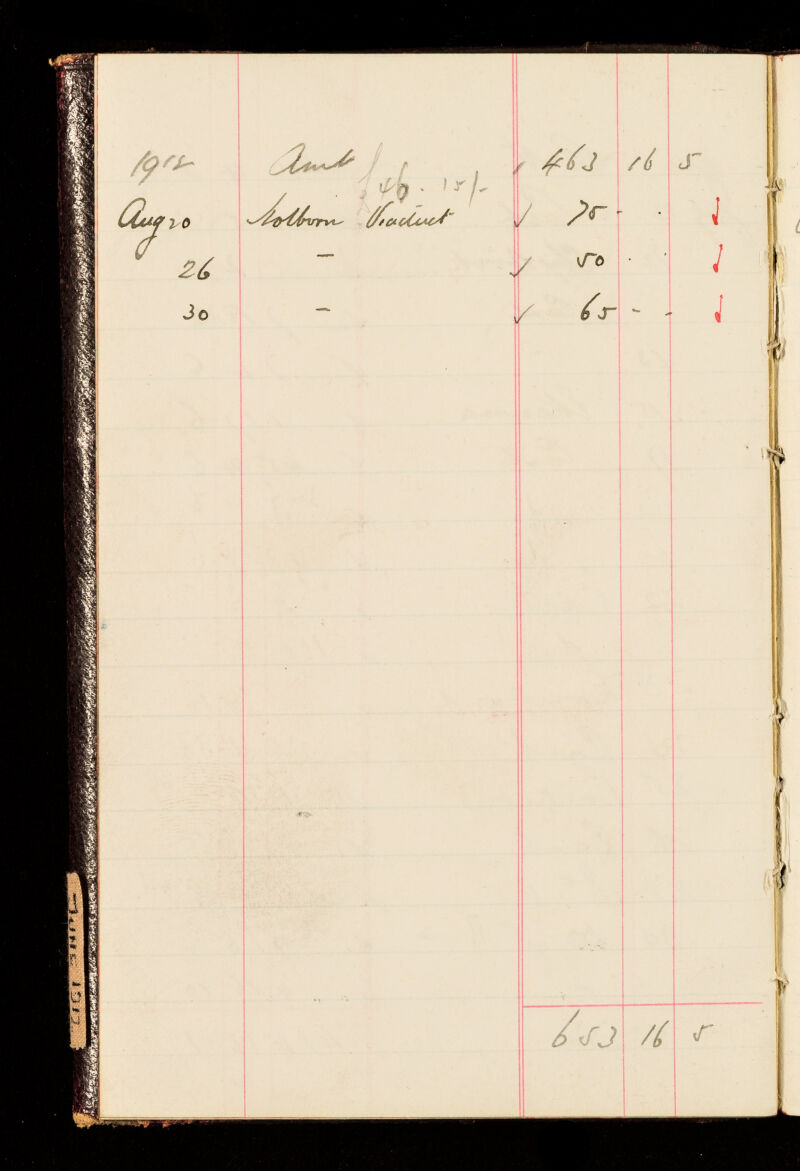 1912 Amt 463 16 5
£46. 15/-
Aug 20 Holborn Viaduct √ 75 - .
26 — √ 50 . .
30 — √ 65 - -
653 16 5
JUNE 1912